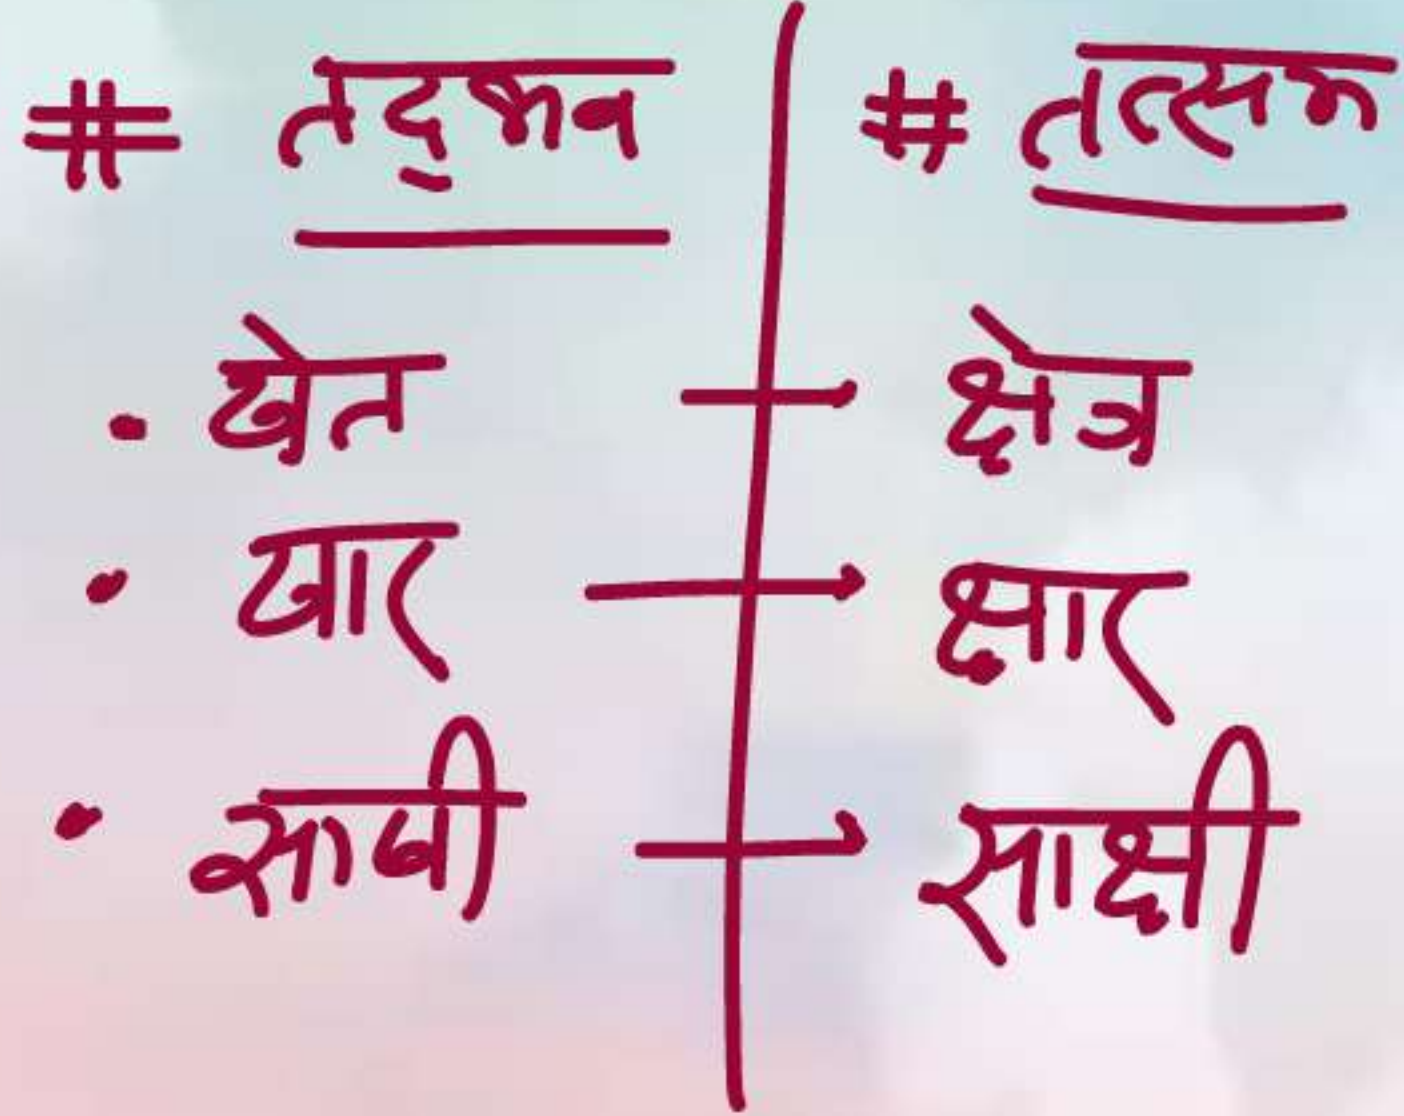 # तद्भव # तत्सम
• खेत → क्षेत्र
• खार → क्षार
• साखी → साक्षी